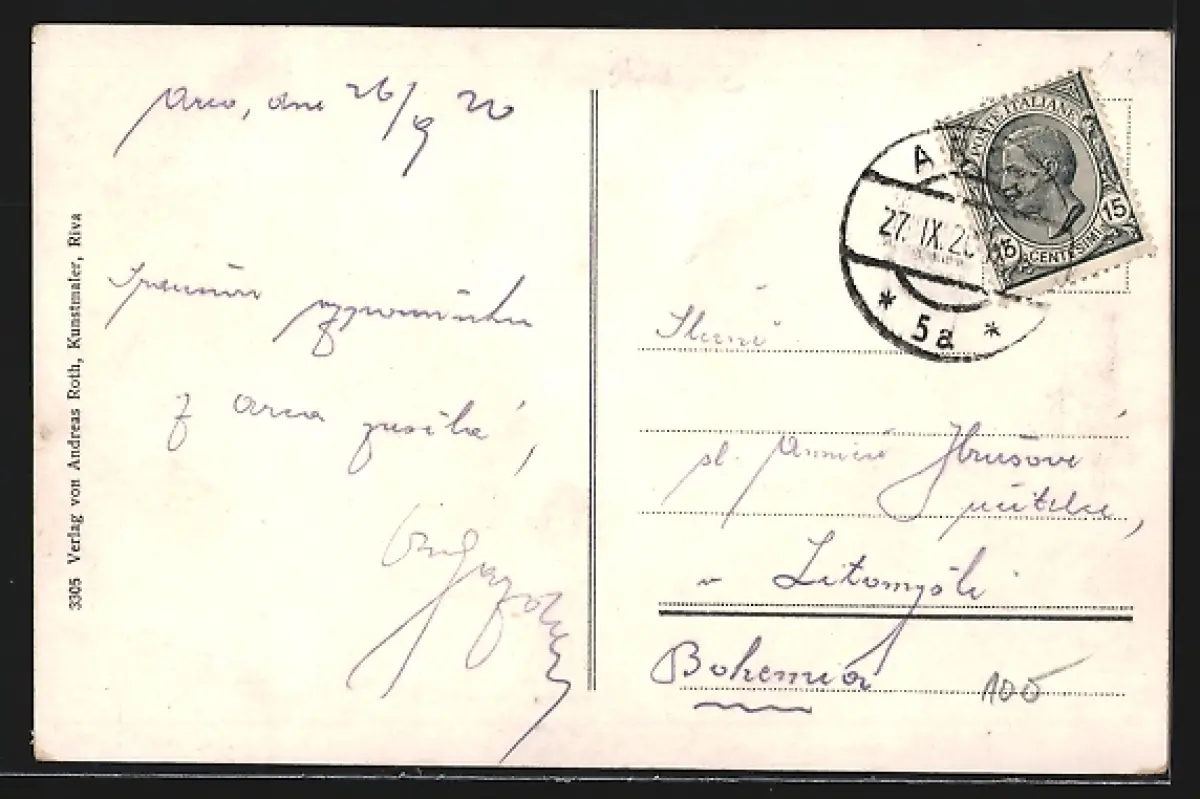 Arco, dne 26/9 20
vzpomínku
z Arca posílá,
3305 Verlag von Andreas Roth, Kunstmaler, Riva
POSTE ITALIANE
15 CENTESIMI 15
A
27. IX. 20
* 5a *
Slečně
sl. Hrušově
učitelce,
v Litomyšli
Bohemia
100